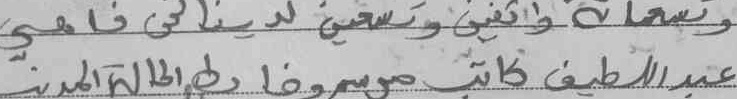 وتسعمائة واثنين وتسعين لدينا نحن قاضي
عبد اللطيف كاتب ضابط الحالة المدنية